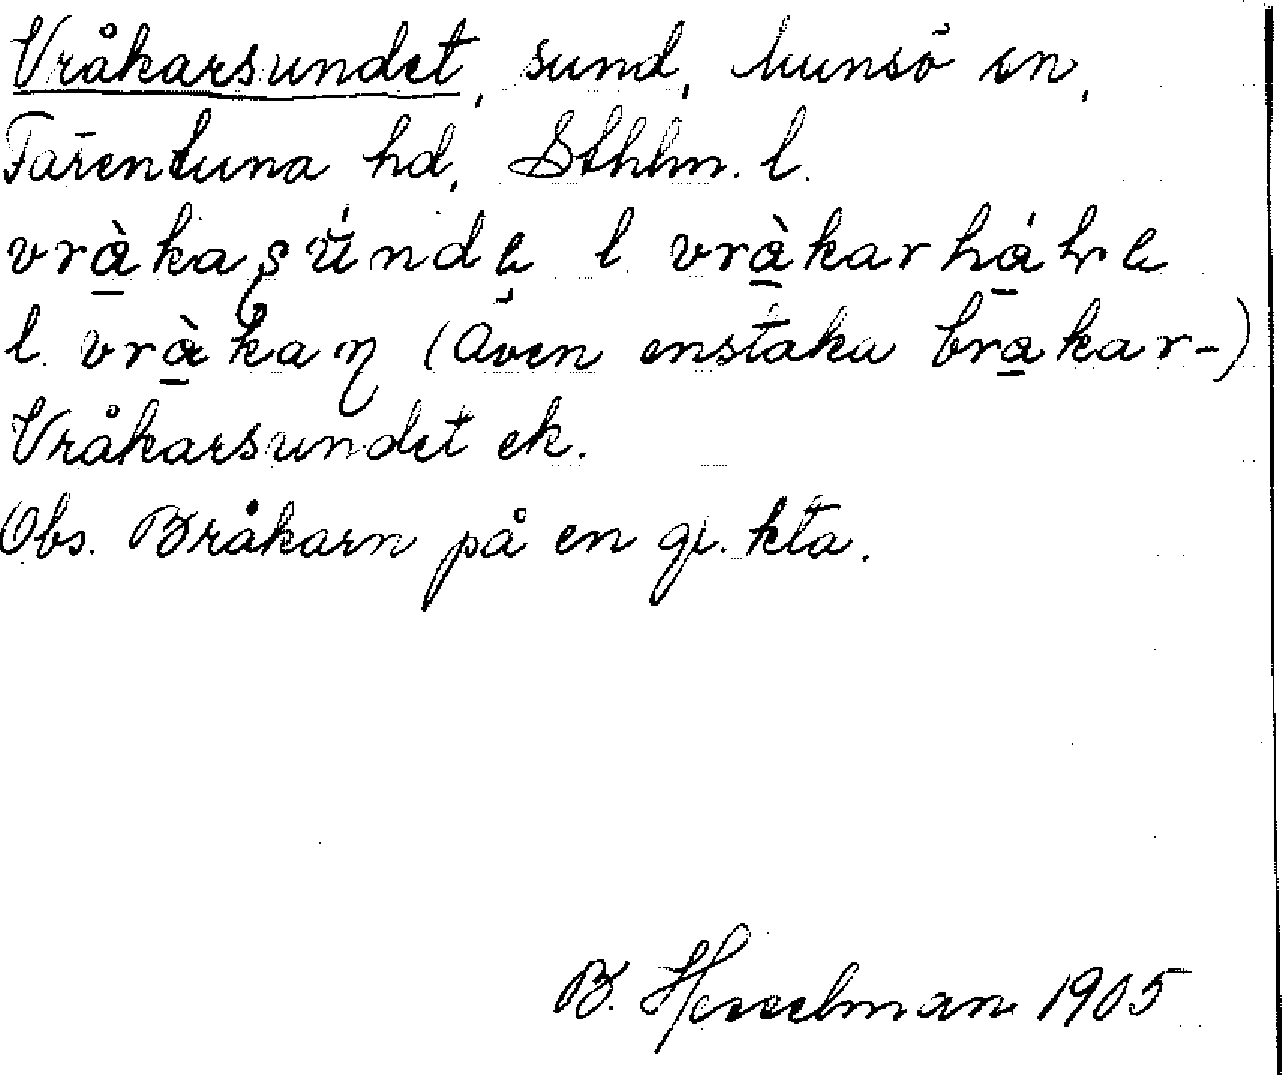 Vråkarsundet, sund, Munsö sn,
Färentuna hd, Sthlm. l.
vrà̱kaʂǘndə l vrà̱karhá̱lvə
l. vrà̱kaɳ (även enstaka bra̱kar-)
Vråkarsundet ek.
Obs. Bråkarn på en gl. kta.
B. Hesselman 1905